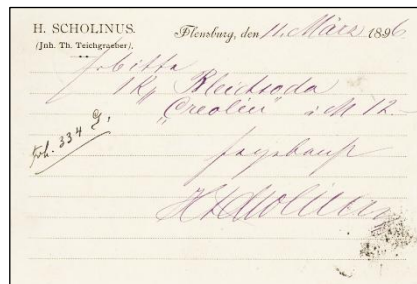 H. SCHOLINUS.
(Jnh. Th. Teichgraeber).
Flensburg, den 11. März 1896
Erbitte
1 K Bleichsoda
"Creolin" i M 12.-
334 G.
H. Scholinus